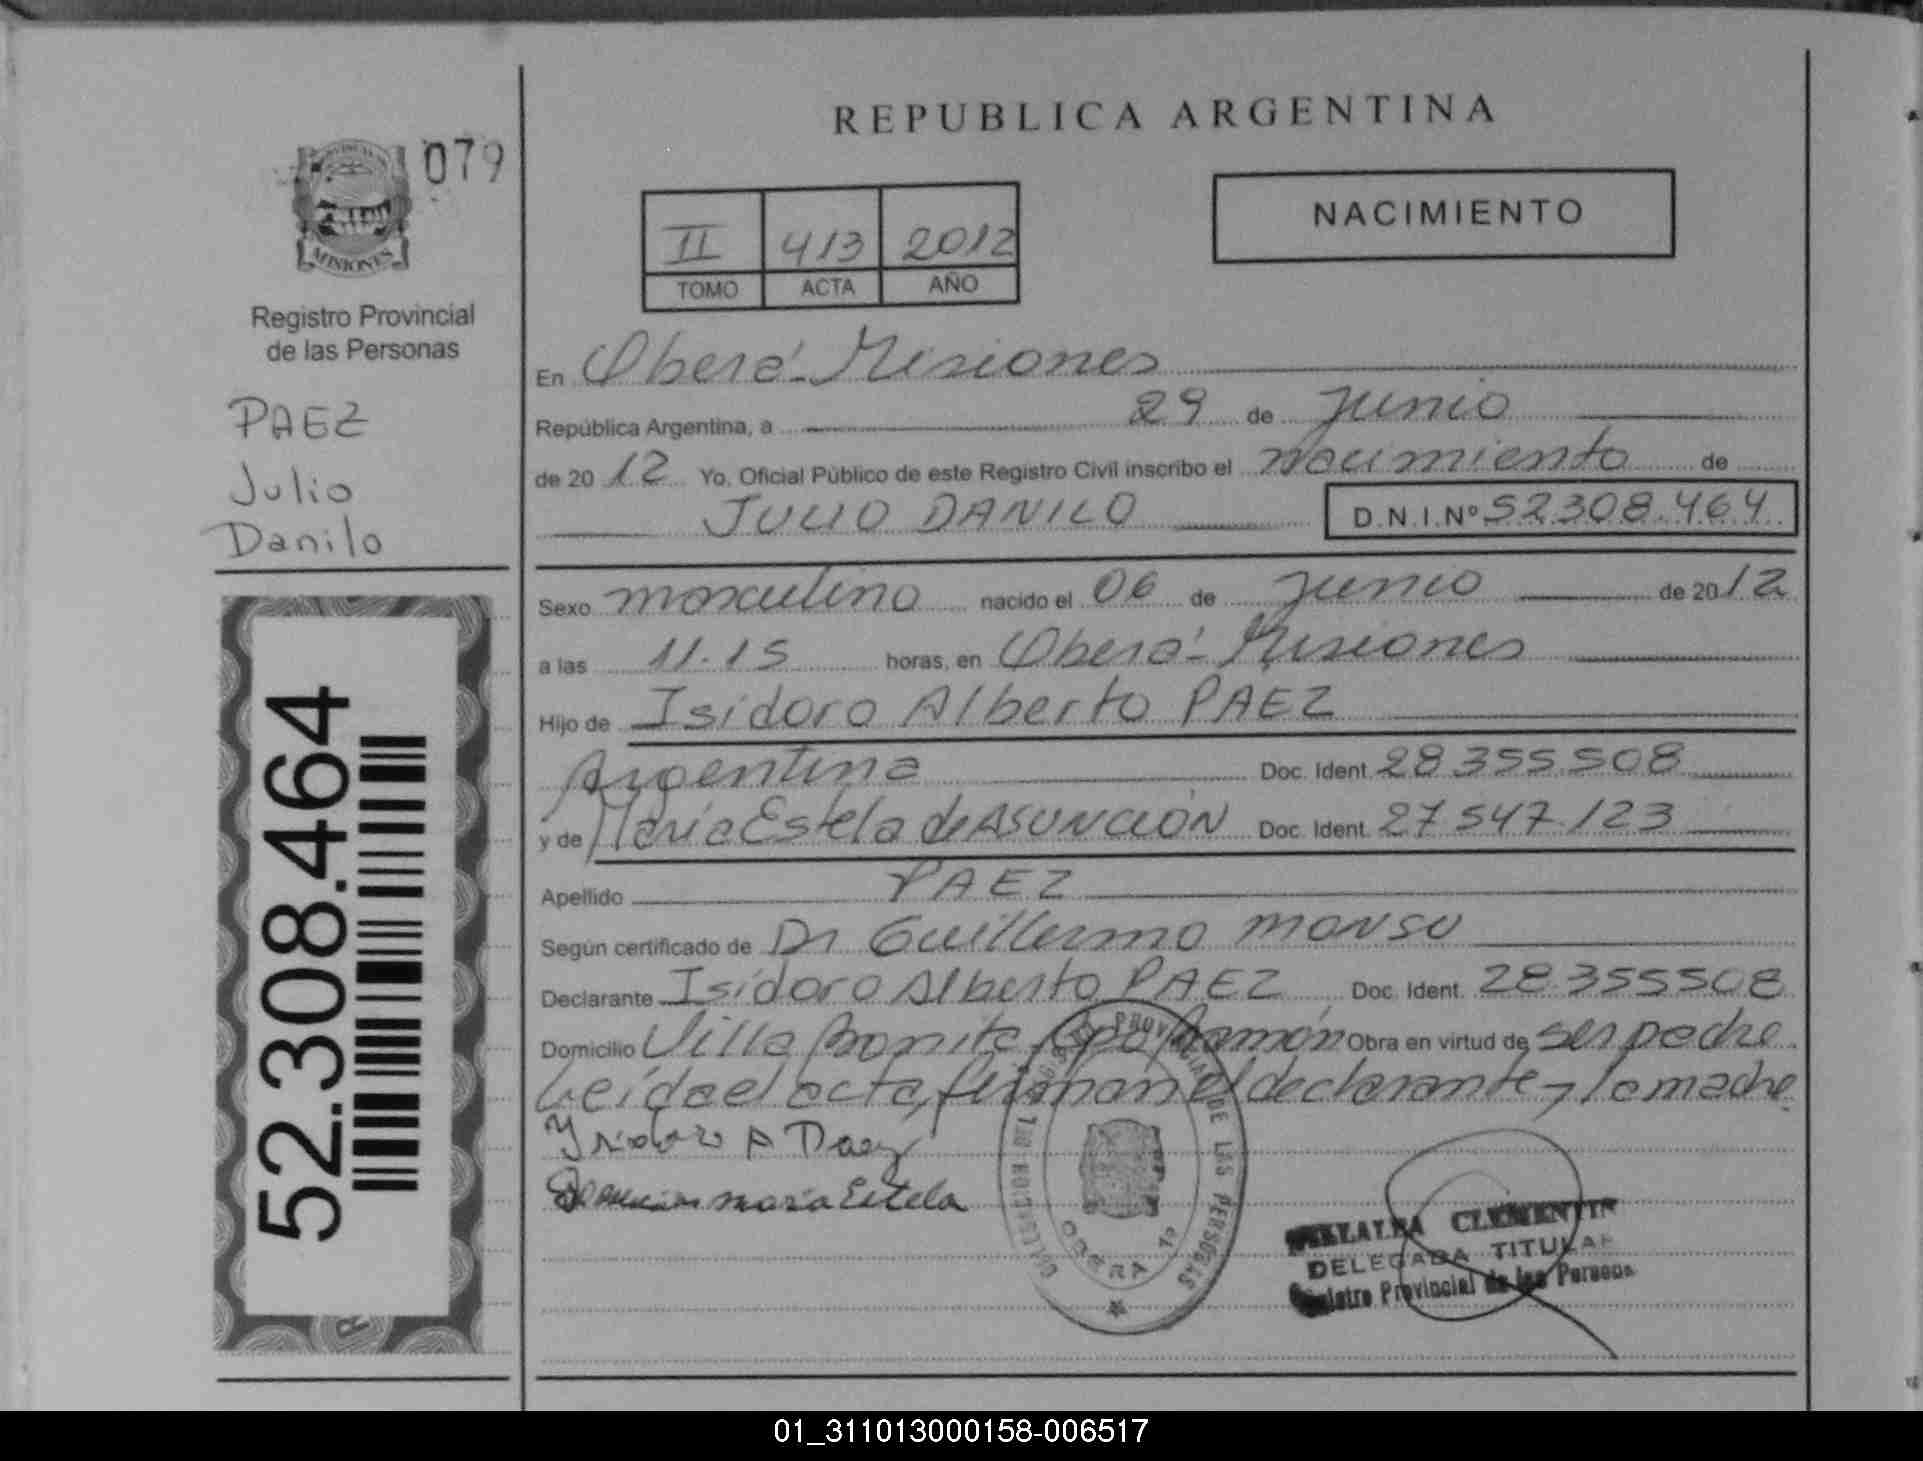 REPUBLICA ARGENTINA
079
NACIMIENTO
II 413 2012
TOMO ACTA AÑO
MISIONES
Registro Provincial
de las Personas
PAEZ
Julio
Danilo
52.308.464
En Oberá - Misiones
República Argentina, a 29 de Junio
de 2012 Yo, Oficial Público de este Registro Civil inscribo el nacimiento de
JULIO DANILO D.N.I.Nº 52308.464
Sexo masculino nacido el 06 de Junio de 2012
a las 11.15 horas, en Oberá - Misiones
Hijo de Isidoro Alberto PAEZ
Argentina Doc. Ident. 28.355.508
y de María Estela de ASUNCION Doc. Ident. 27.547.123
Apellido PAEZ
Según certificado de Dr Guillermo MONSU
Declarante Isidoro Alberto PAEZ Doc. Ident. 28.355508
Domicilio Villa Bonita Cpo Ramón Obra en virtud de ser padre
Leída el acta, firman el declarante y la madre
Ysidoro A Paez
Asuncion maria Estela
PROVINCIAL DE LAS PERSONAS
OBERA 1ª
VILLALBA CLEMENTIN
DELEGADA TITULAR
Registro Provincial de las Personas
01_311013000158-006517